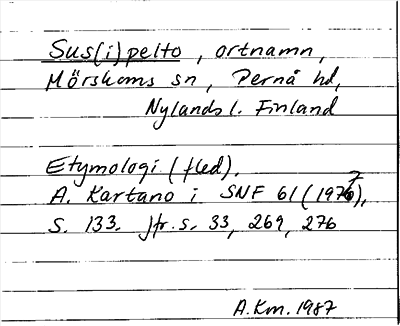 Sus(i)pelto, ortnamn,
Mörskoms sn, Pernå hd,
Nylands l. Finland
Etymologi (fled).
A. Kartano i SNF 61 (1977),
s. 133. Jfr. s. 33, 269, 276
A.Km. 1987